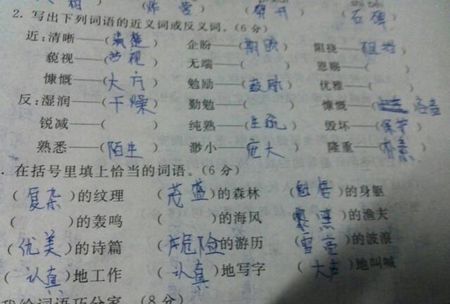 2. 写出下列词语的近义词或反义词。(6分)
近:清晰——(清楚) 企盼——(期盼) 阻挠——(阻挡)
藐视——(  ) 无端——( ) 恩赐——( )
慷慨——(大方) 勉励——(鼓励) 优雅——( )
反:湿润——(干燥) 勤勉——( ) 慷慨——(吝啬)
锐减——( ) 纯熟——(生疏) 毁坏——(保护)
熟悉——(陌生) 渺小——(庞大) 隆重——( )
. 在括号里填上恰当的词语。(6分)
(复杂)的纹理 (茂盛)的森林 ( )的身躯
( )的轰鸣 ( )的海风 ( )的渔夫
(优美)的诗篇 (危险)的游历 (雪亮)的波浪
(认真)地工作 (认真)地写字 (大声)地喊
给词语巧分家。(8分)